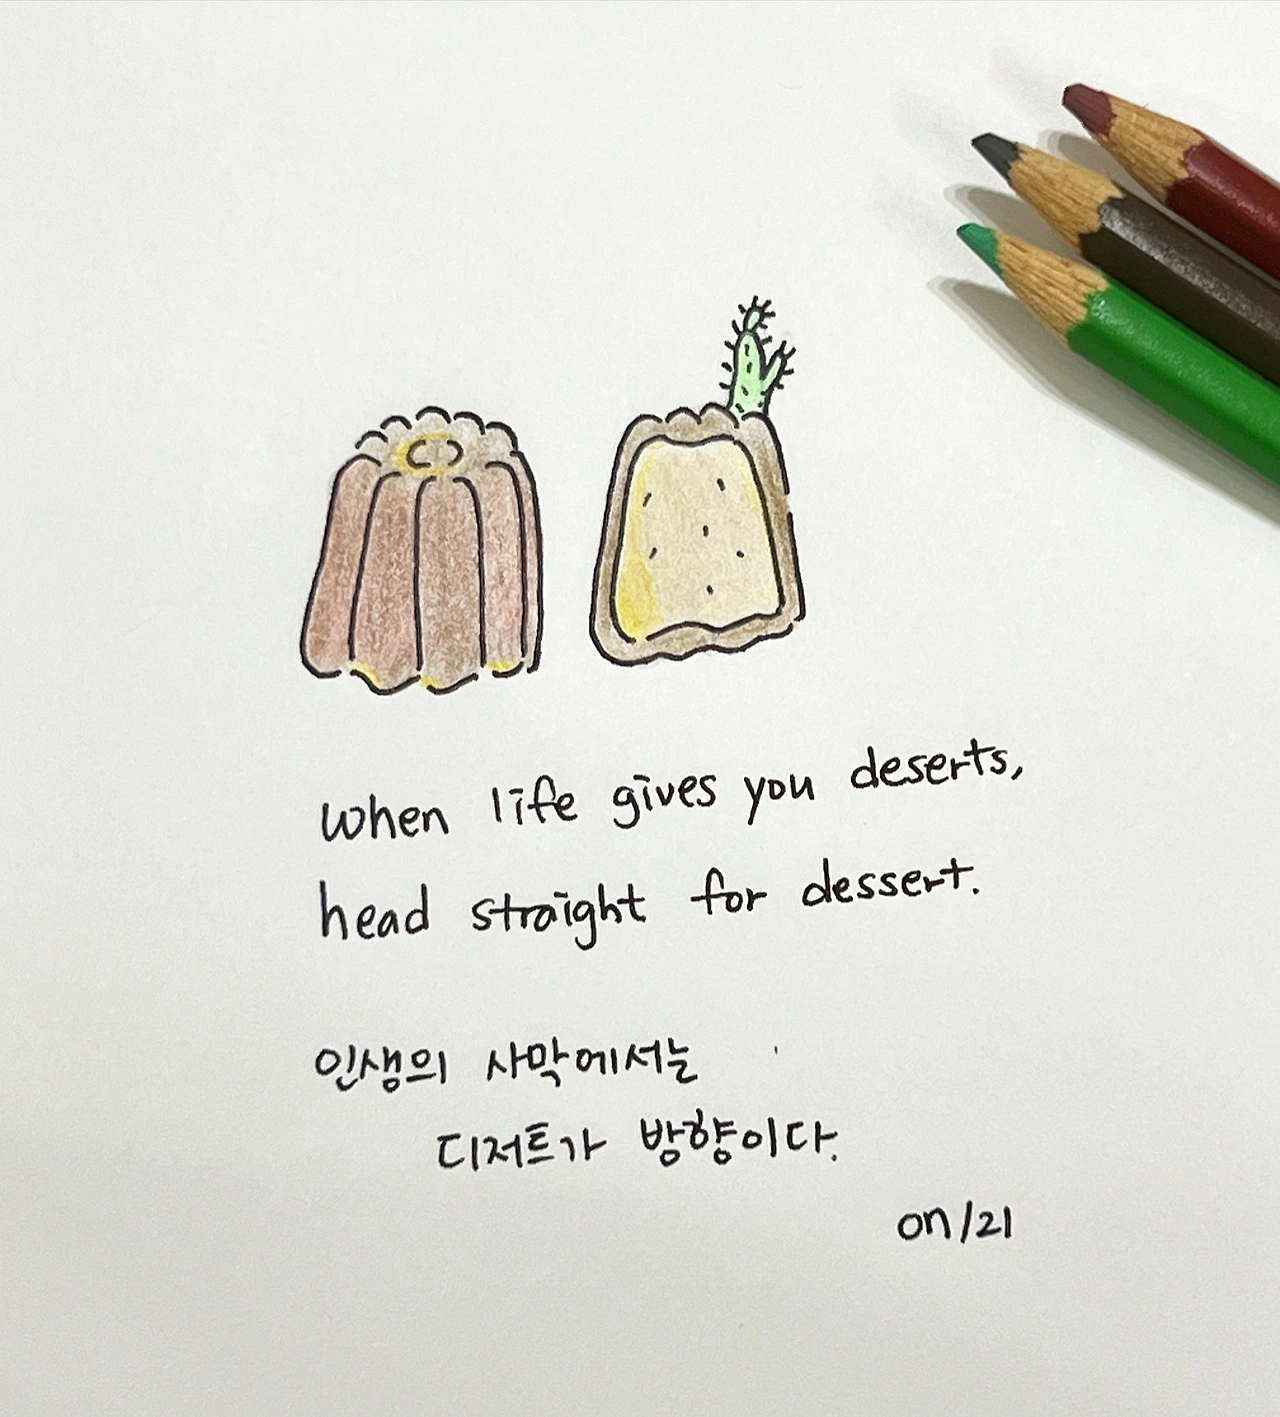 When life gives you deserts,
head straight for dessert.
인생의 사막에서는
디저트가 방향이다.
on/21